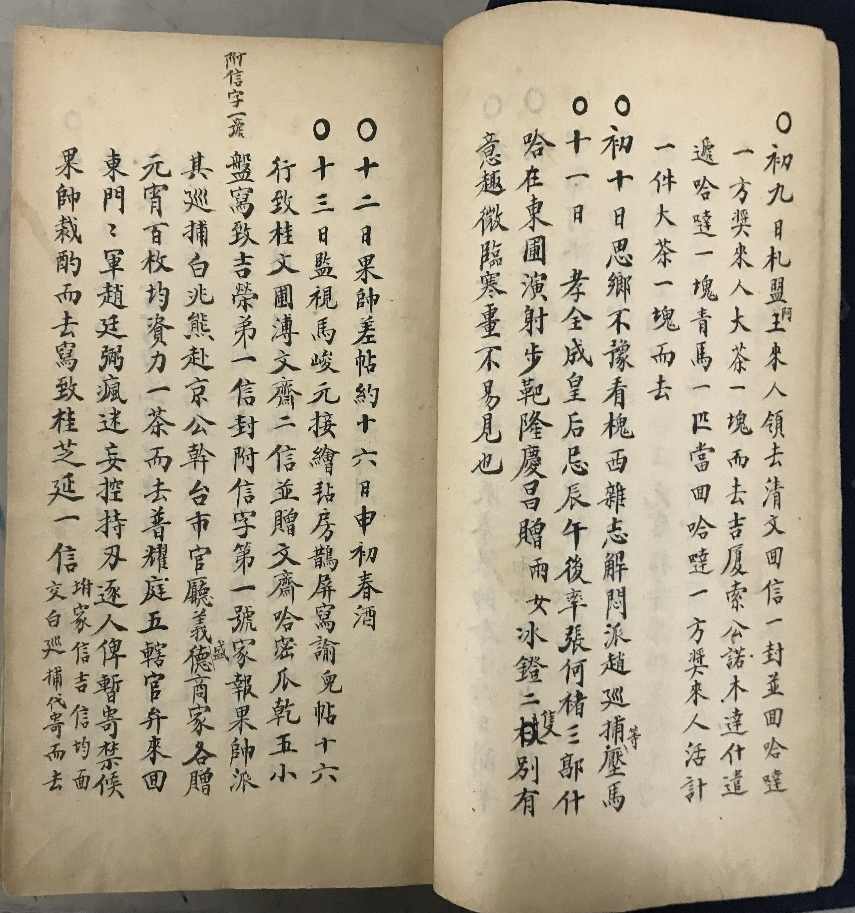 ○初九日札盟王來人領去清文回信一封並回哈噠
門
一方奨來人大茶一塊而去吉厦索公諾木達什遣
遞哈噠一塊青馬一匹當回哈噠一方奨來人活計
一件大茶一塊而去
○初十日思鄉不豫看槐西雜志解悶派趙巡捕壓馬
等
○十一日 孝全成皇后忌辰午後率張何楮三郎什
哈在東圃演射步靶隆慶昌贈兩女冰鐙二枝別有
隻
意趣微臨寒重不易見也
○十二日果帥差帖約十六日申初春酒
○十三日監視馬峻元接繪玷房鵲屏寫諭兒帖十六
行致桂文圃溥文齋二信並贈文齋哈密瓜乾五小
附信字一號
盤寫致吉榮弟一信封附信字第一號家報果帥派
其巡捕白兆熊赴京公幹台市官廳義德商家各贈
盛
元宵百枚均資力一茶而去普耀庭五轄官弁來回
東門〻軍趙廷弼瘋迷妄控持刃逐人俾暫寄禁候
果帥裁酌而去寫致桂芝延一信
坿家信吉信均面
交白巡捕代寄而去